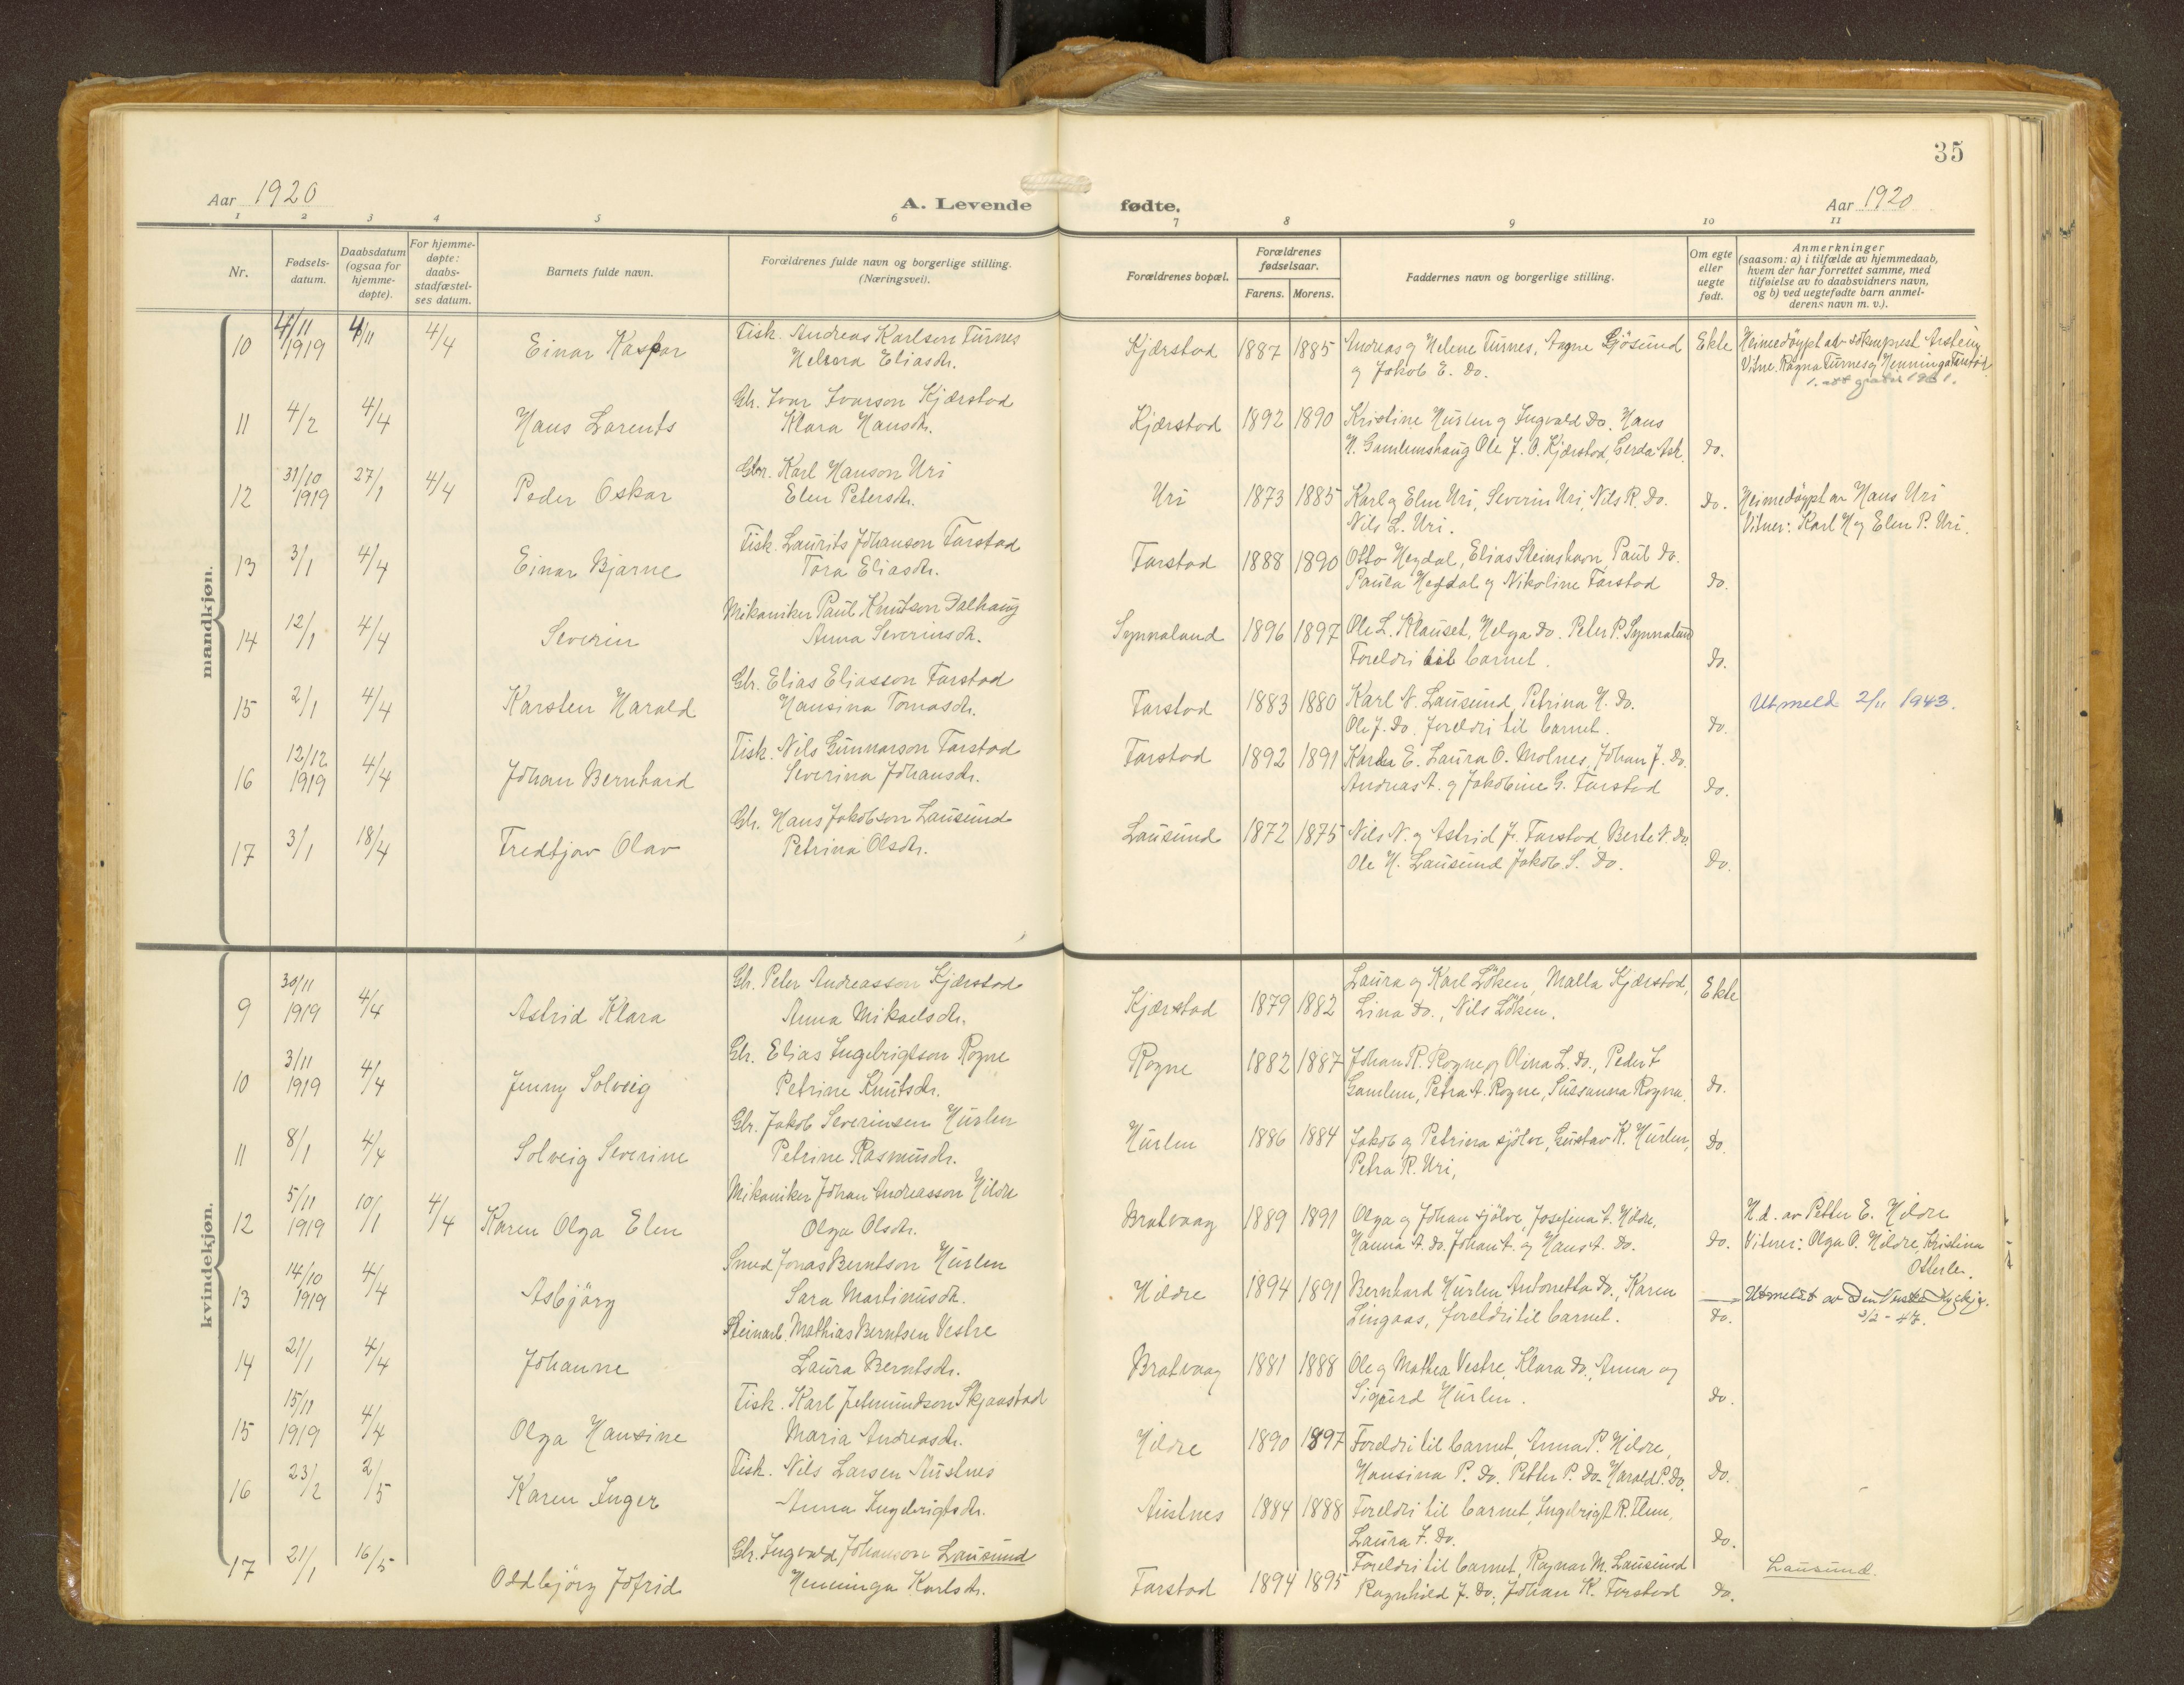 35
Aar 1920
A. Levende fødte.
Aar 1920
1 2 3 4 5 6 7 8 9 10 11
Nr.
Fødsels-
datum.
Daabsdatum
(ogsaa for
hjemme-
døpte).
For hjemme-
døpte:
daabs-
stadfæstel-
ses datum.
Barnets fulde navn.
Forældrenes fulde navn og borgerlige stilling.
(Næringsvei).
Forældrenes bopæl.
Forældrenes
fødselsaar.
Farens. Morens.
Faddernes navn og borgerlige stilling.
Om egte
eller
uegte
født.
Anmerkninger
(saasom: a) i tilfælde av hjemmedaab,
hvem der har forrettet samme, med
tilføielse av to daabsvidners navn,
og b) ved uegtefødte barn anmel-
derens navn m. v.).
mandkjøn.
10 4/11 1919 4/11 4/4 Einar Kaspar
Fisk. Andreas Karlson Turnes
Eliasdr.
Kjærstad 1887 1885
Andreas og Helene Turnes, Gjösund
og Jakob E. do.
Ekte
Heimedöypt av sokneprest
Vitne. Ragna Turnes og Henninga Farstad
11 4/2 4/4 Hans Larents
Gbr. Ivar Ivarson Kjærstad
Klara Hansdr.
Kjærstad 1892 1890
Kristine Hurlen og Ingvald do. Hans
H. Gamlemshaug Ole J. O. Kjærstad, Gerda Ask.
do.
12 31/10 1919 27/1 4/4 Peder Oskar
Gbr. Karl Hanson Uri
Elen Petersdr.
Uri 1873 1885
Karl og Elen Uri, Severin Uri, Nils R. do.
Nils L. Uri.
do.
Heimedöypt av Hans Uri
Vitner: Karl H og Elen P. Uri.
13 3/1 4/4 Einar Bjarne
Fisk. Laurits Johanson Farstad
Tora Eliasdr.
Farstad 1888 1890
Otto Hegdal, Elias Steinshavn, Paul do.
Paula Hegdal og Nikoline Farstad
do.
14 12/1 4/4 Severin
Mikaniker Paul Knutson Dalhaug
Anna Severinsdr.
Synnaland 1896 1897
Ole L. Klauset, Helga do. Peter P. Synnaland
Foreldri til barnet.
do.
15 2/1 4/4 Karsten Harald
Gbr. Elias Eliasson Farstad
Hansina Tomasdr.
Farstad 1883 1880
Karl N. Lausund, Petrina H. do.
Ole J. do. foreldri til barnet.
do.
Utmeld 2/11 1943.
16 12/12 1919 4/4 Johan Bernhard
Fisk. Nils Gunnarson Farstad
Severina Johansdr.
Farstad 1892 1891
E. Laura O. Molnes, Johan J. do.
Andreas A. og Jakobine G. Farstad
do.
17 3/1 18/4 Fredtjov Olav
Gbr. Hans Jakobson Lausund
Petrina Olsdr.
Lausund 1872 1875
Nils N. og Astrid J. Farstad, Berte N. do.
Ole H. Lausund Jakob S. do.
do.
kvindekjøn.
9 30/11 1919 4/4 Astrid Klara
Gbr. Peter Andreasson Kjærstad
Anna Mikaelsdr.
Kjærstad 1879 1882
Laura og Karl Löken, Malla Kjærstad,
Lina do., Nils Löken.
Ekte
10 3/11 1919 4/4 Jenny Solveig
Gbr. Elias Ingebrigtson Rogne
Petrine Knutsdr.
Rogne 1882 1887
Johan R. Rogne og Olina L. do., Peder I
Gamlem, Petra A. Rogne, Sussanna Rogne.
do.
11 8/1 4/4 Solveig Severine
Gbr. Jakob Severinsen Hurlen
Petrine Rasmusdr.
Hurlen 1886 1884
Jakob og Petrina sjölve, Gustav K. Hurlen,
Petra R. Uri,
do.
12 5/11 1919 10/1 4/4 Karen Olga Elen
Mikaniker Johan Andreasson Hildre
Olga Olsdr.
Bratvaag 1889 1891
Olga og Johan sjölve, Josefina A. Hildre,
Hanna A. do. Johan A. og Hans A. do.
do.
H.d. av Petter E. Hildre
Vitner: Olga O. Hildre, Kristina
Otterlei.
13 14/10 1919 4/4 Asbjörg
Smed Jonas Berntson Hurlen
Sara Martinusdr.
Hildre 1894 1891
Bernhard Hurlen Antonetta do., Karen
Lingaas, foreldri til barnet.
do.
Utmeldt av Den Norske
3/2 - 47.
14 21/1 4/4 Johanne
Steinarb. Mathias Berntsen Vestre
Laura Berntsdr.
Bratvaag 1881 1888
Ole og Mathea Vestre, Klara do., Anna og
Sigurd Hurlen.
do.
15 15/11 1919 4/4 Olga Hansine
Fisk. Karl Jetmundson Skjaastad
Maria Andreasdr.
Hildre 1890 1897
Foreldri til barnet, Anna P. Hildre,
Hansina P. do. Petter P. do. Harald P. do.
do.
16 23/2 2/5 Karen Inger
Fisk. Nils Larsen Austnes
Anna Ingebrigtsdr.
Austnes 1884 1888
Foreldri til barnet, Ingebrigt R. Flem,
Laura F. do.
do.
17 21/1 16/5 Oddbjörg Jofrid
Gbr. Ingvald Johanson Lausund
Henninga Karlsdr.
Farstad 1894 1895
Foreldri til barnet, Ragnar M. Lausund
Ragnhild J. do. Johan K. Farstad
do.
Lausund.